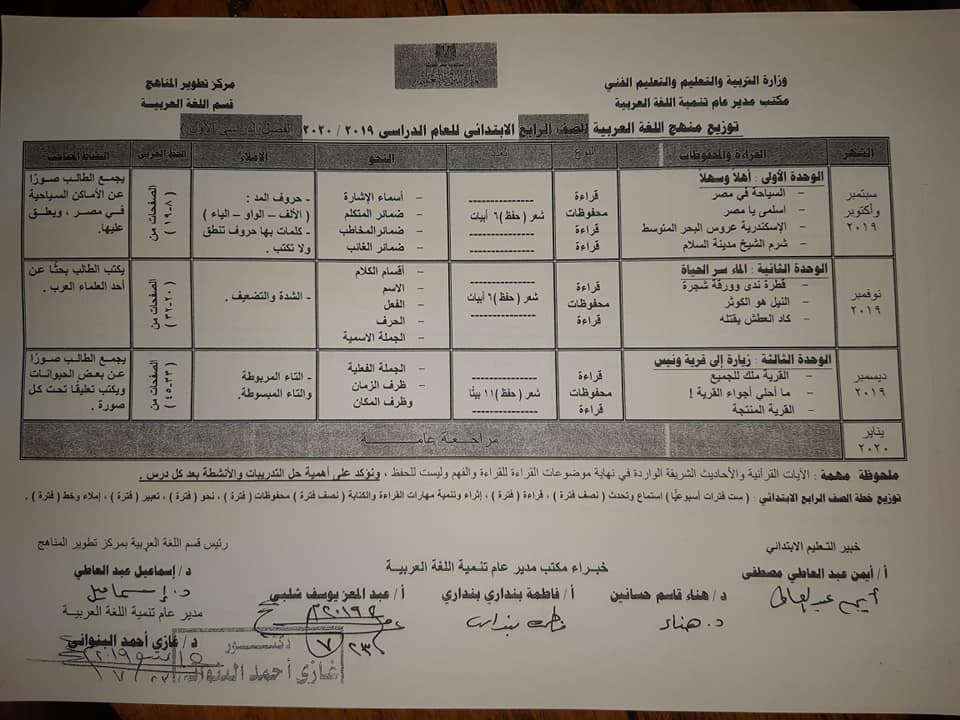 وزارة التربية والتعليم والتعليم الفني
مكتب مدير عام تنمية اللغة العربية
مركز تطوير المناهج
قسم اللغة العربية
توزيع منهج اللغة العربية للصف الرابع الابتدائى للعام الدراسى ٢٠١٩ / ٢٠٢٠ ( الفصل الدراسى الأول )
الشهر القراءة والمحفوظات النوع العدد النحو الإملاء الخط العربى النشاط المصاحب
سبتمبر وأكتوبر ٢٠١٩
الوحدة الأولى : أهلاً وسهلاً
- السياحة في مصر
- اسلمى يا مصر
- الإسكندرية عروس البحر المتوسط
- شرم الشيخ مدينة السلام
قراءة
محفوظات
قراءة
قراءة
--------------
شعر ( حفظ ) ٦ أبيات
--------------
--------------
- أسماء الإشارة
- ضمائر المتكلم
- ضمائر المخاطب
- ضمائر الغائب
- حروف المد :
( الألف – الواو – الياء )
- كلمات بها حروف تنطق
ولا تكتب .
الصفحات من
( ٨-١٩ )
يجمع الطالب صورًا
عن الأماكن السياحية
في مصر ، ويعلق
عليها.
نوفمبر ٢٠١٩
الوحدة الثانية : الماء سر الحياة
- قطرة ندى وورقة شجرة
- النيل هو الكوثر
- كاد العطش يقتله
قراءة
محفوظات
قراءة
--------------
شعر ( حفظ ) ٦ أبيات
--------------
- أقسام الكلام
- الاسم
- الفعل
- الحرف
- الجملة الاسمية
- الشدة والتضعيف .
الصفحات من
( ٢٠-٣٢ )
يكتب الطالب بحثًا عن
أحد العلماء العرب .
ديسمبر ٢٠١٩
الوحدة الثالثة : زيارة إلى قرية ونيس
- القرية ملك للجميع
- ما أحلي أجواء القرية !
- القرية المنتجة
قراءة
محفوظات
قراءة
--------------
شعر ( حفظ ) ١١ بيتًا
--------------
- الجملة الفعلية
- ظرف الزمان
وظرف المكان
- التاء المربوطة
والتاء المبسوطة.
الصفحات من
( ٣٣-٤٥ )
يجمع الطالب صورًا
عن بعض الحيوانات
ويكتب تعليقًا تحت كل
صورة .
يناير ٢٠٢٠
مراجعة عامــــــة
ملحوظة مهمة : الآيات القرآنية والأحاديث الشريفة الواردة في نهاية موضوعات القراءة للقراءة والفهم وليست للحفظ ، ونؤكد على أهمية حل التدريبات والأنشطة بعد كل درس .
توزيع خطة الصف الرابع الابتدائي : ( ست فترات أسبوعيًا ) استماع وتحدث ( نصف فترة ) ، قراءة ( فترة ) ، إثراء وتنمية مهارات القراءة والكتابة ( نصف فترة ) محفوظات ( فترة ) ، نحو ( فترة ) ، تعبير ( فترة ) ، إملاء وخط ( فترة ) .
خبير التعليم الابتدائي
أ / أيمن عبد العاطي مصطفى
أيمن عبد العاطي
خبراء مكتب مدير عام تنمية اللغة العربية
د / هناء قاسم حسانين
أ / فاطمة بنداري بنداري
أ / عبد المعز يوسف شلبي
د. هناء
فاطمة بنداري
رئيس قسم اللغة العربية بمركز تطوير المناهج
د / إسماعيل عبد العاطي
د. إسماعيل
مدير عام تنمية اللغة العربية
د / غازي أحمد البنواني
دكتور
غازي أحمد البنواني